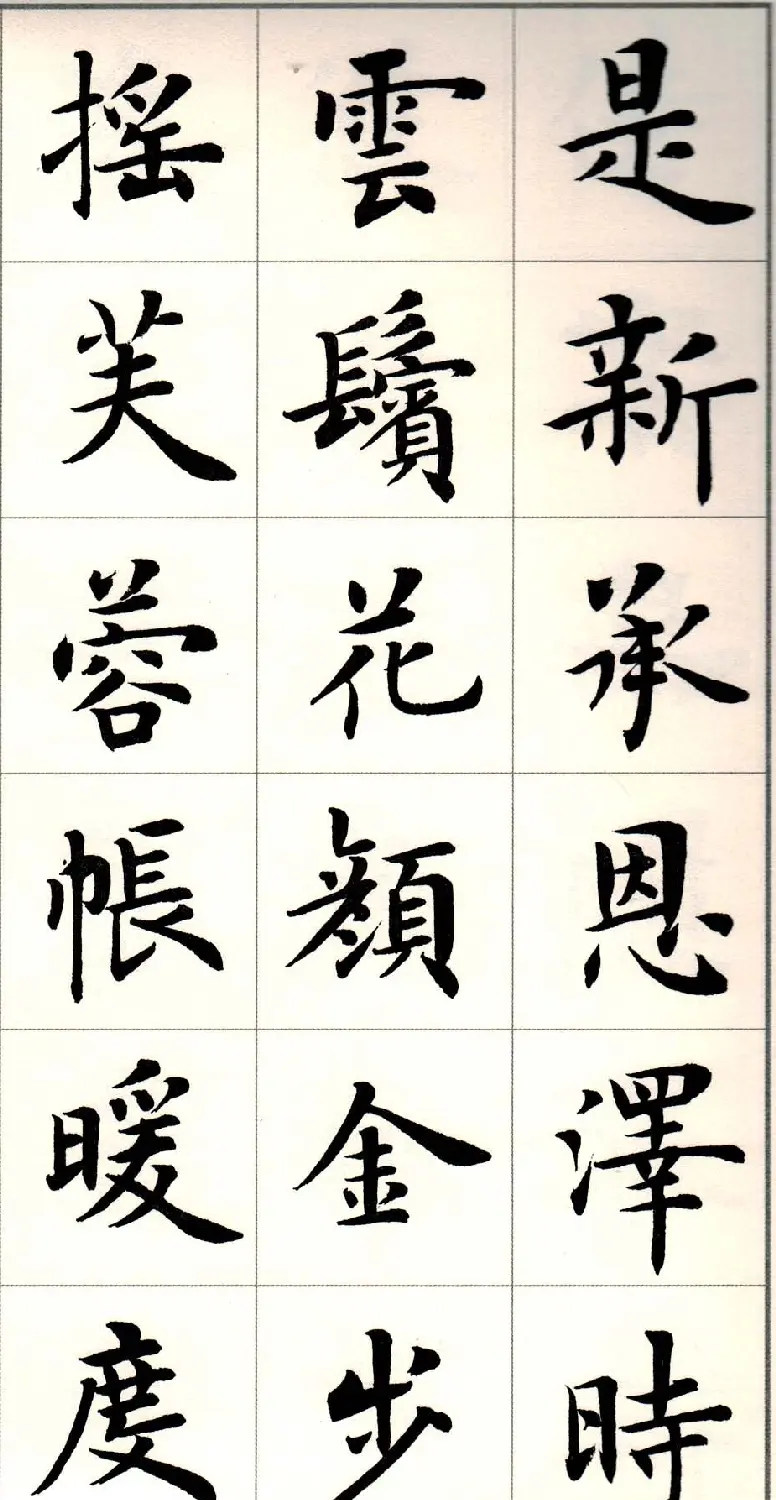 是新承恩澤時
雲鬢花顔金步
摇芙蓉帳暖度